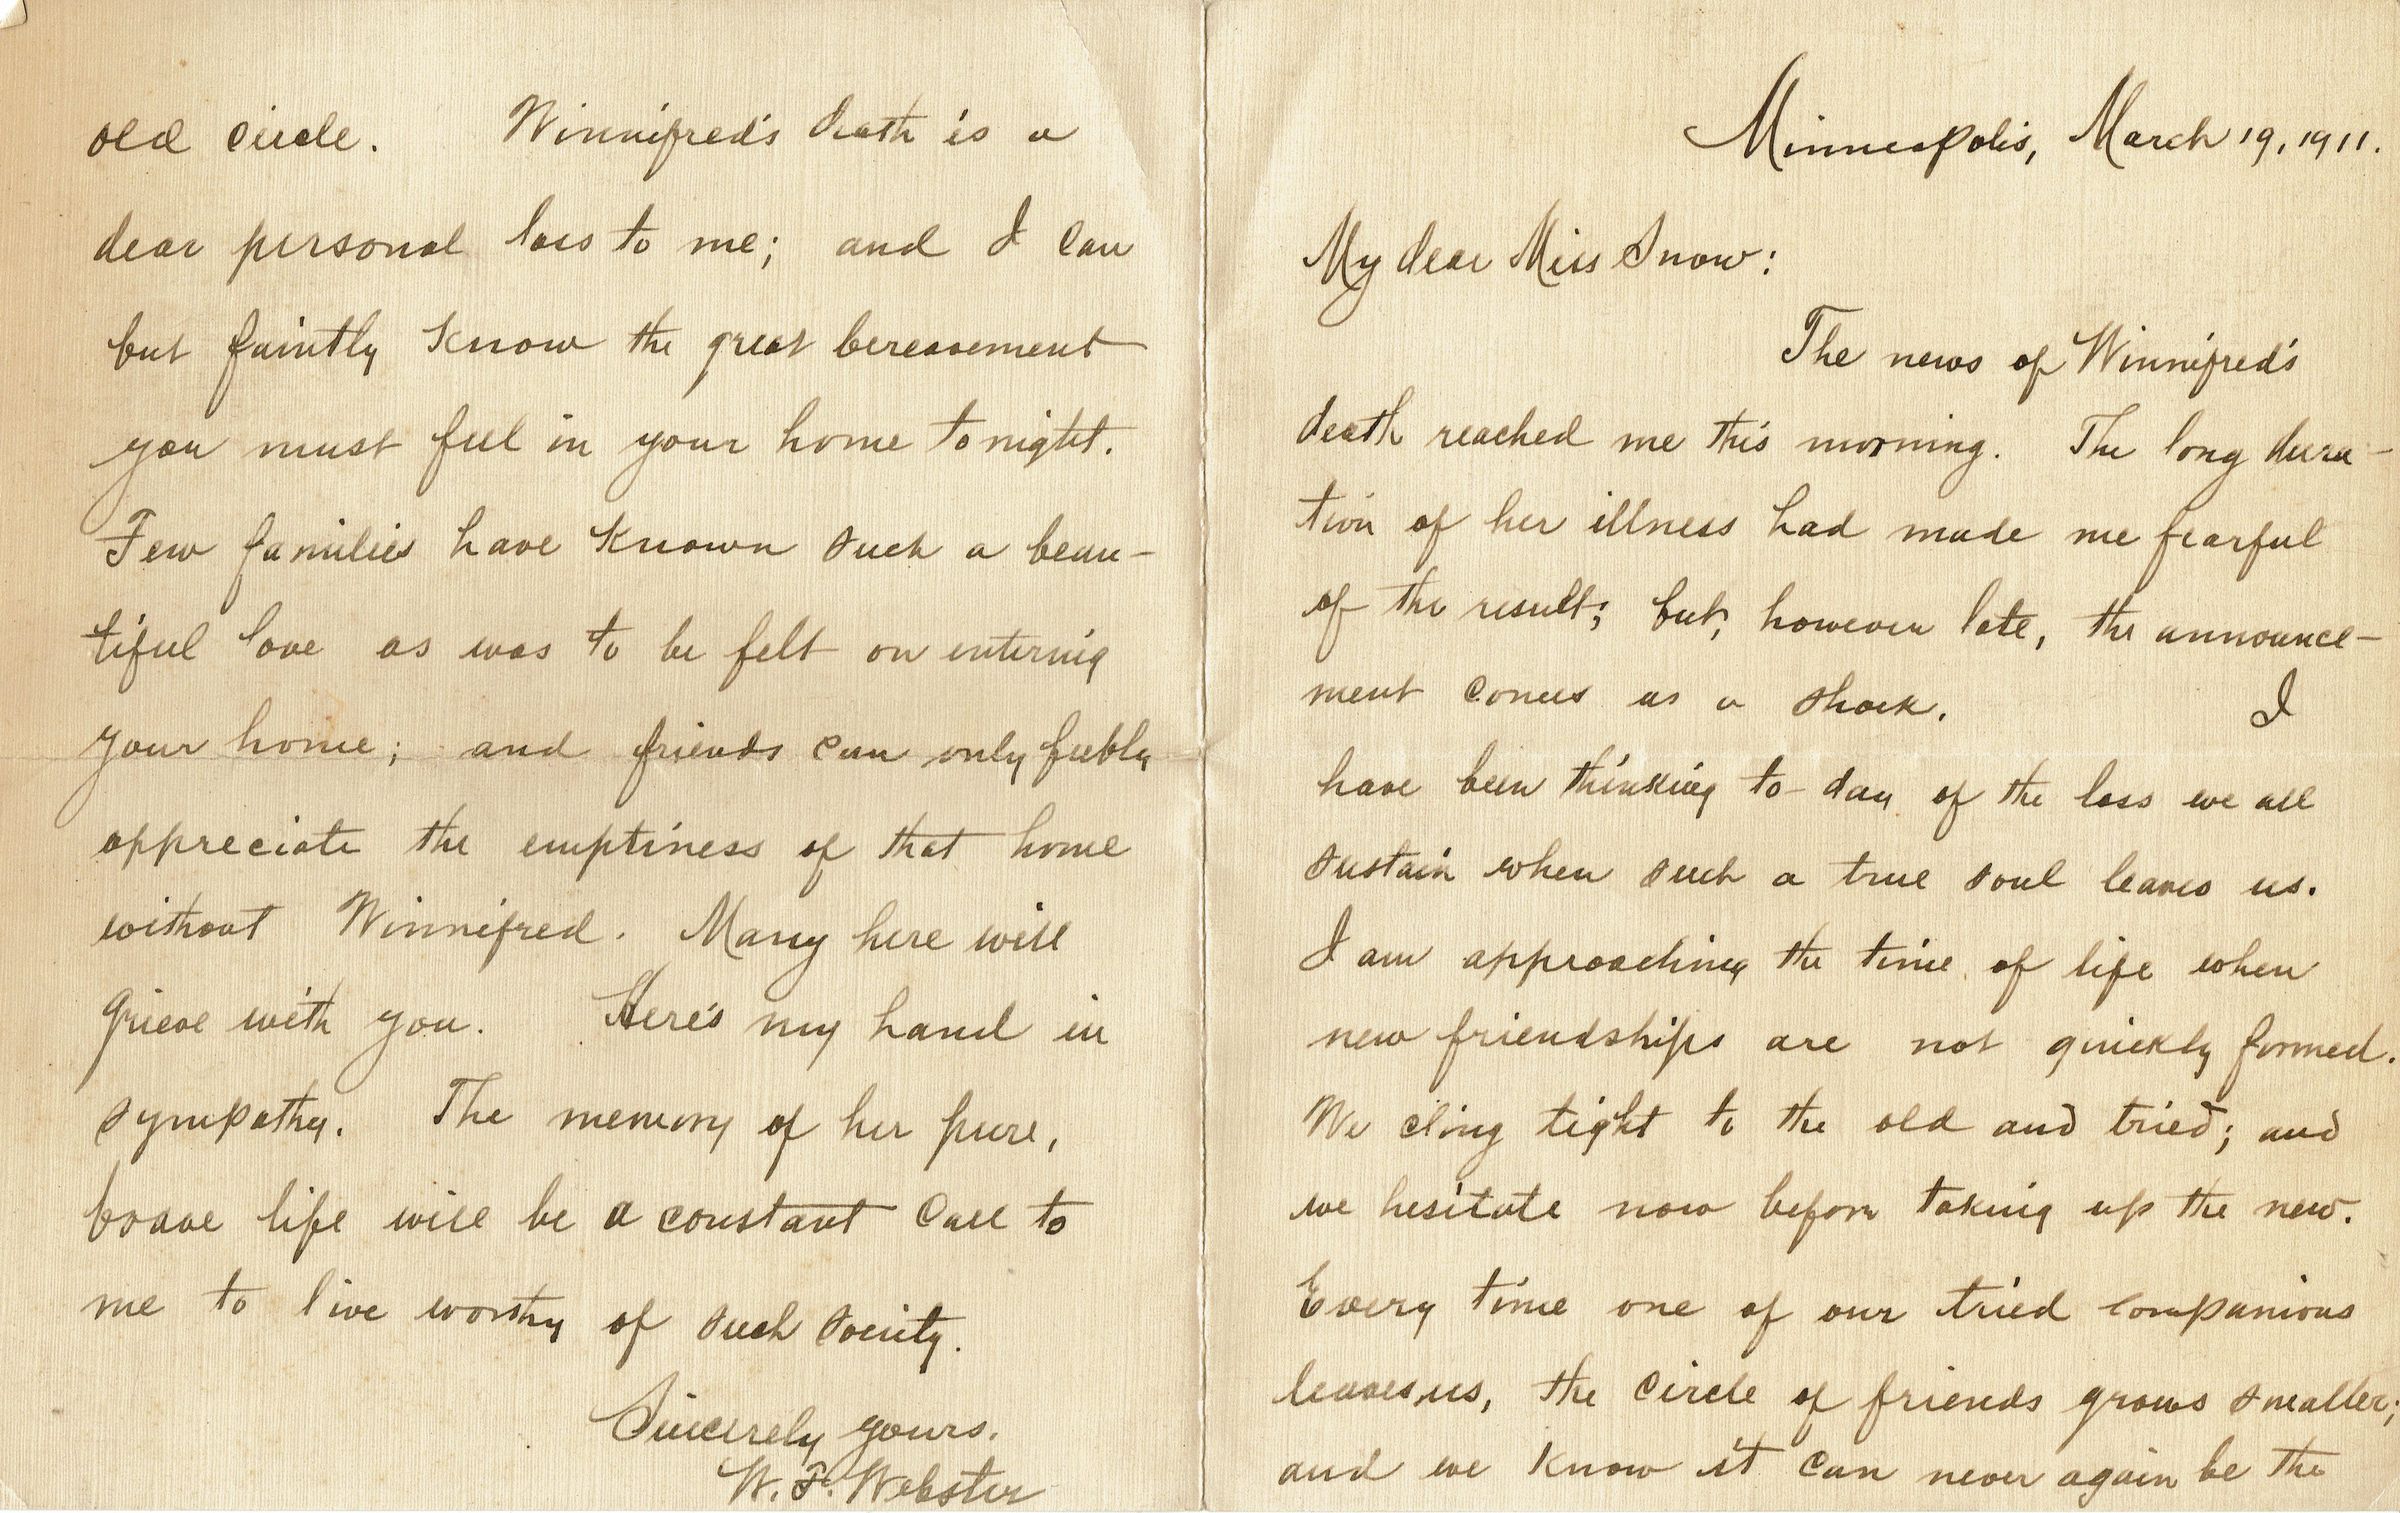 Minneapolis, March 19, 1911.
My dear Miss Snow:
The news of Winnifred's
death reached me this morning. The long dura-
tion of her illness had made me fearful
of the result; but, however late, the announce-
ment comes as a shock. I
have been thinking to-day of the loss we all
sustain when such a true soul leaves us.
I am approaching the time of life when
new friendships are not quickly formed.
We cling tight to the old and tried; and
we hesitate now before taking up the new.
Every time one of our tried companions
leaves us, the circle of friends grows smaller;
and we know it can never again be the
old circle. Winnifred's death is a
dear personal loss to me; and I can
but faintly know the great bereavement
you must feel in your home tonight.
Few families have known such a beau-
tiful love as was to be felt on entering
your home; and friends can only feebly
appreciate the emptiness of that home
without Winnifred. Many here will
grieve with you. Here's my hand in
sympathy. The memory of her pure,
brave life will be a constant call to
me to live worthy of such society.
Sincerely yours.
W. F. Webster